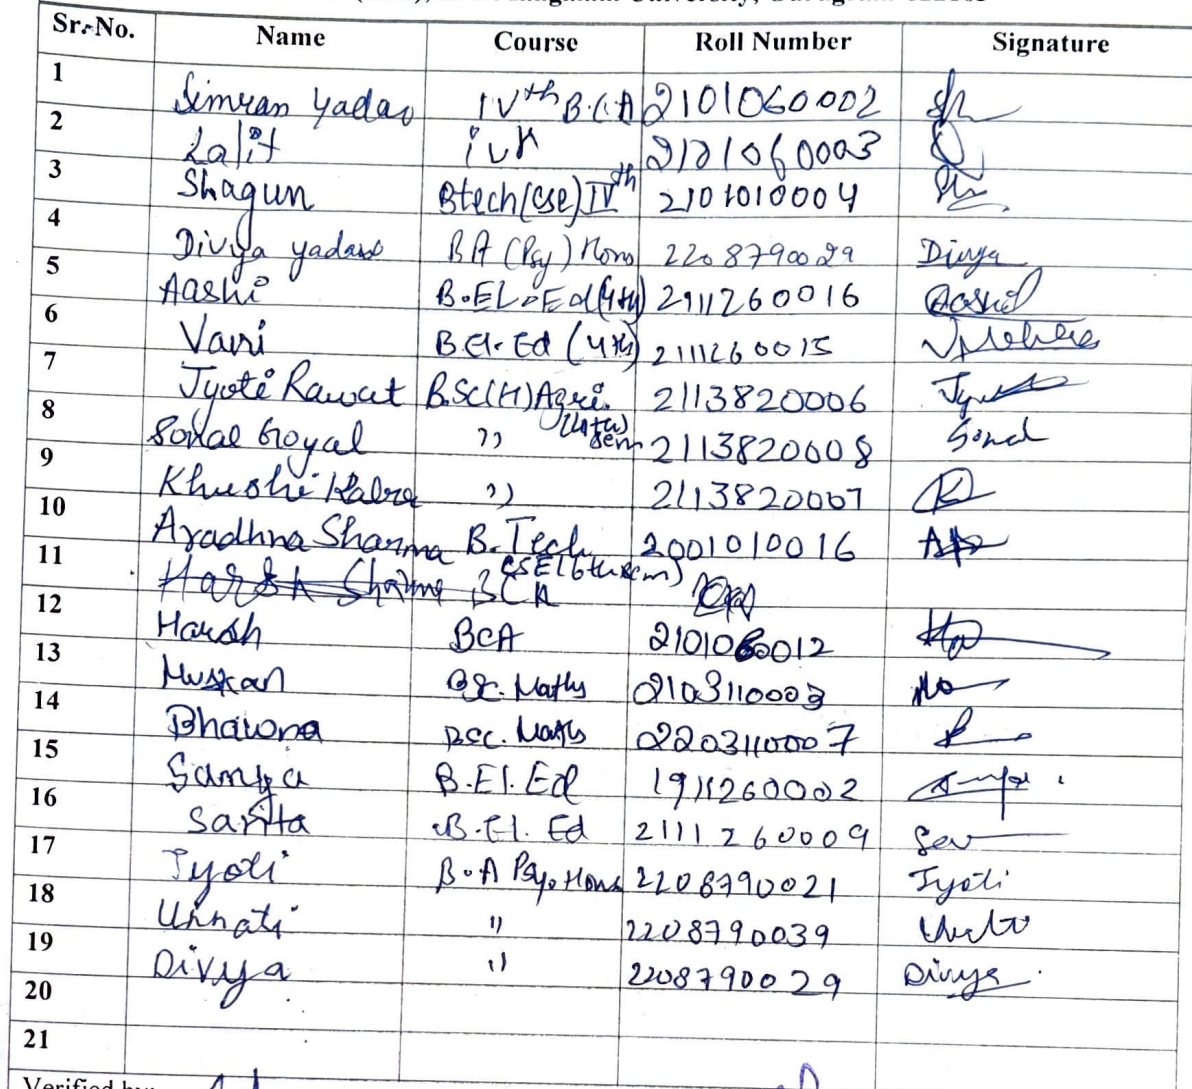 Sr. No. Name Course Roll Number Signature
1 Simran Yadav IVth B.C.A 2101060002
2 Lalit ivth 2121060003
3 Shagun Btech(CSE)IVth 2101010004
4 Divya yadav BA (Psy) Hons 2208790029 Divya
5 Aashi B.EL.Ed(4th) 2111260016 Aashi
6 Vani B.El.Ed (4th) 2111260015
7 Jyoti Rawat B.Sc(H)Agri. 2113820006
(4th) sem
8 Sonal Goyal " 2113820008 Sonal
9 Khushi Kalra " 2113820007
10 Aradhna Sharma B.Tech 2001010016
CSE(6th sem)
11 Harsh Sharma BCA
12 Harsh BCA 2101060012
13 Muskan BSc. Maths 02103110003
14 Bhawna BSc. Maths 02203110007
15 Samya B.El.Ed 1911260002
16 Sarita B.El. Ed 2111260009
17 Jyoti B.A Psy. Hons 2208790021 Jyoti
18 Unnati " 2208790039
19 Divya " 2208790029 Divya
20
21